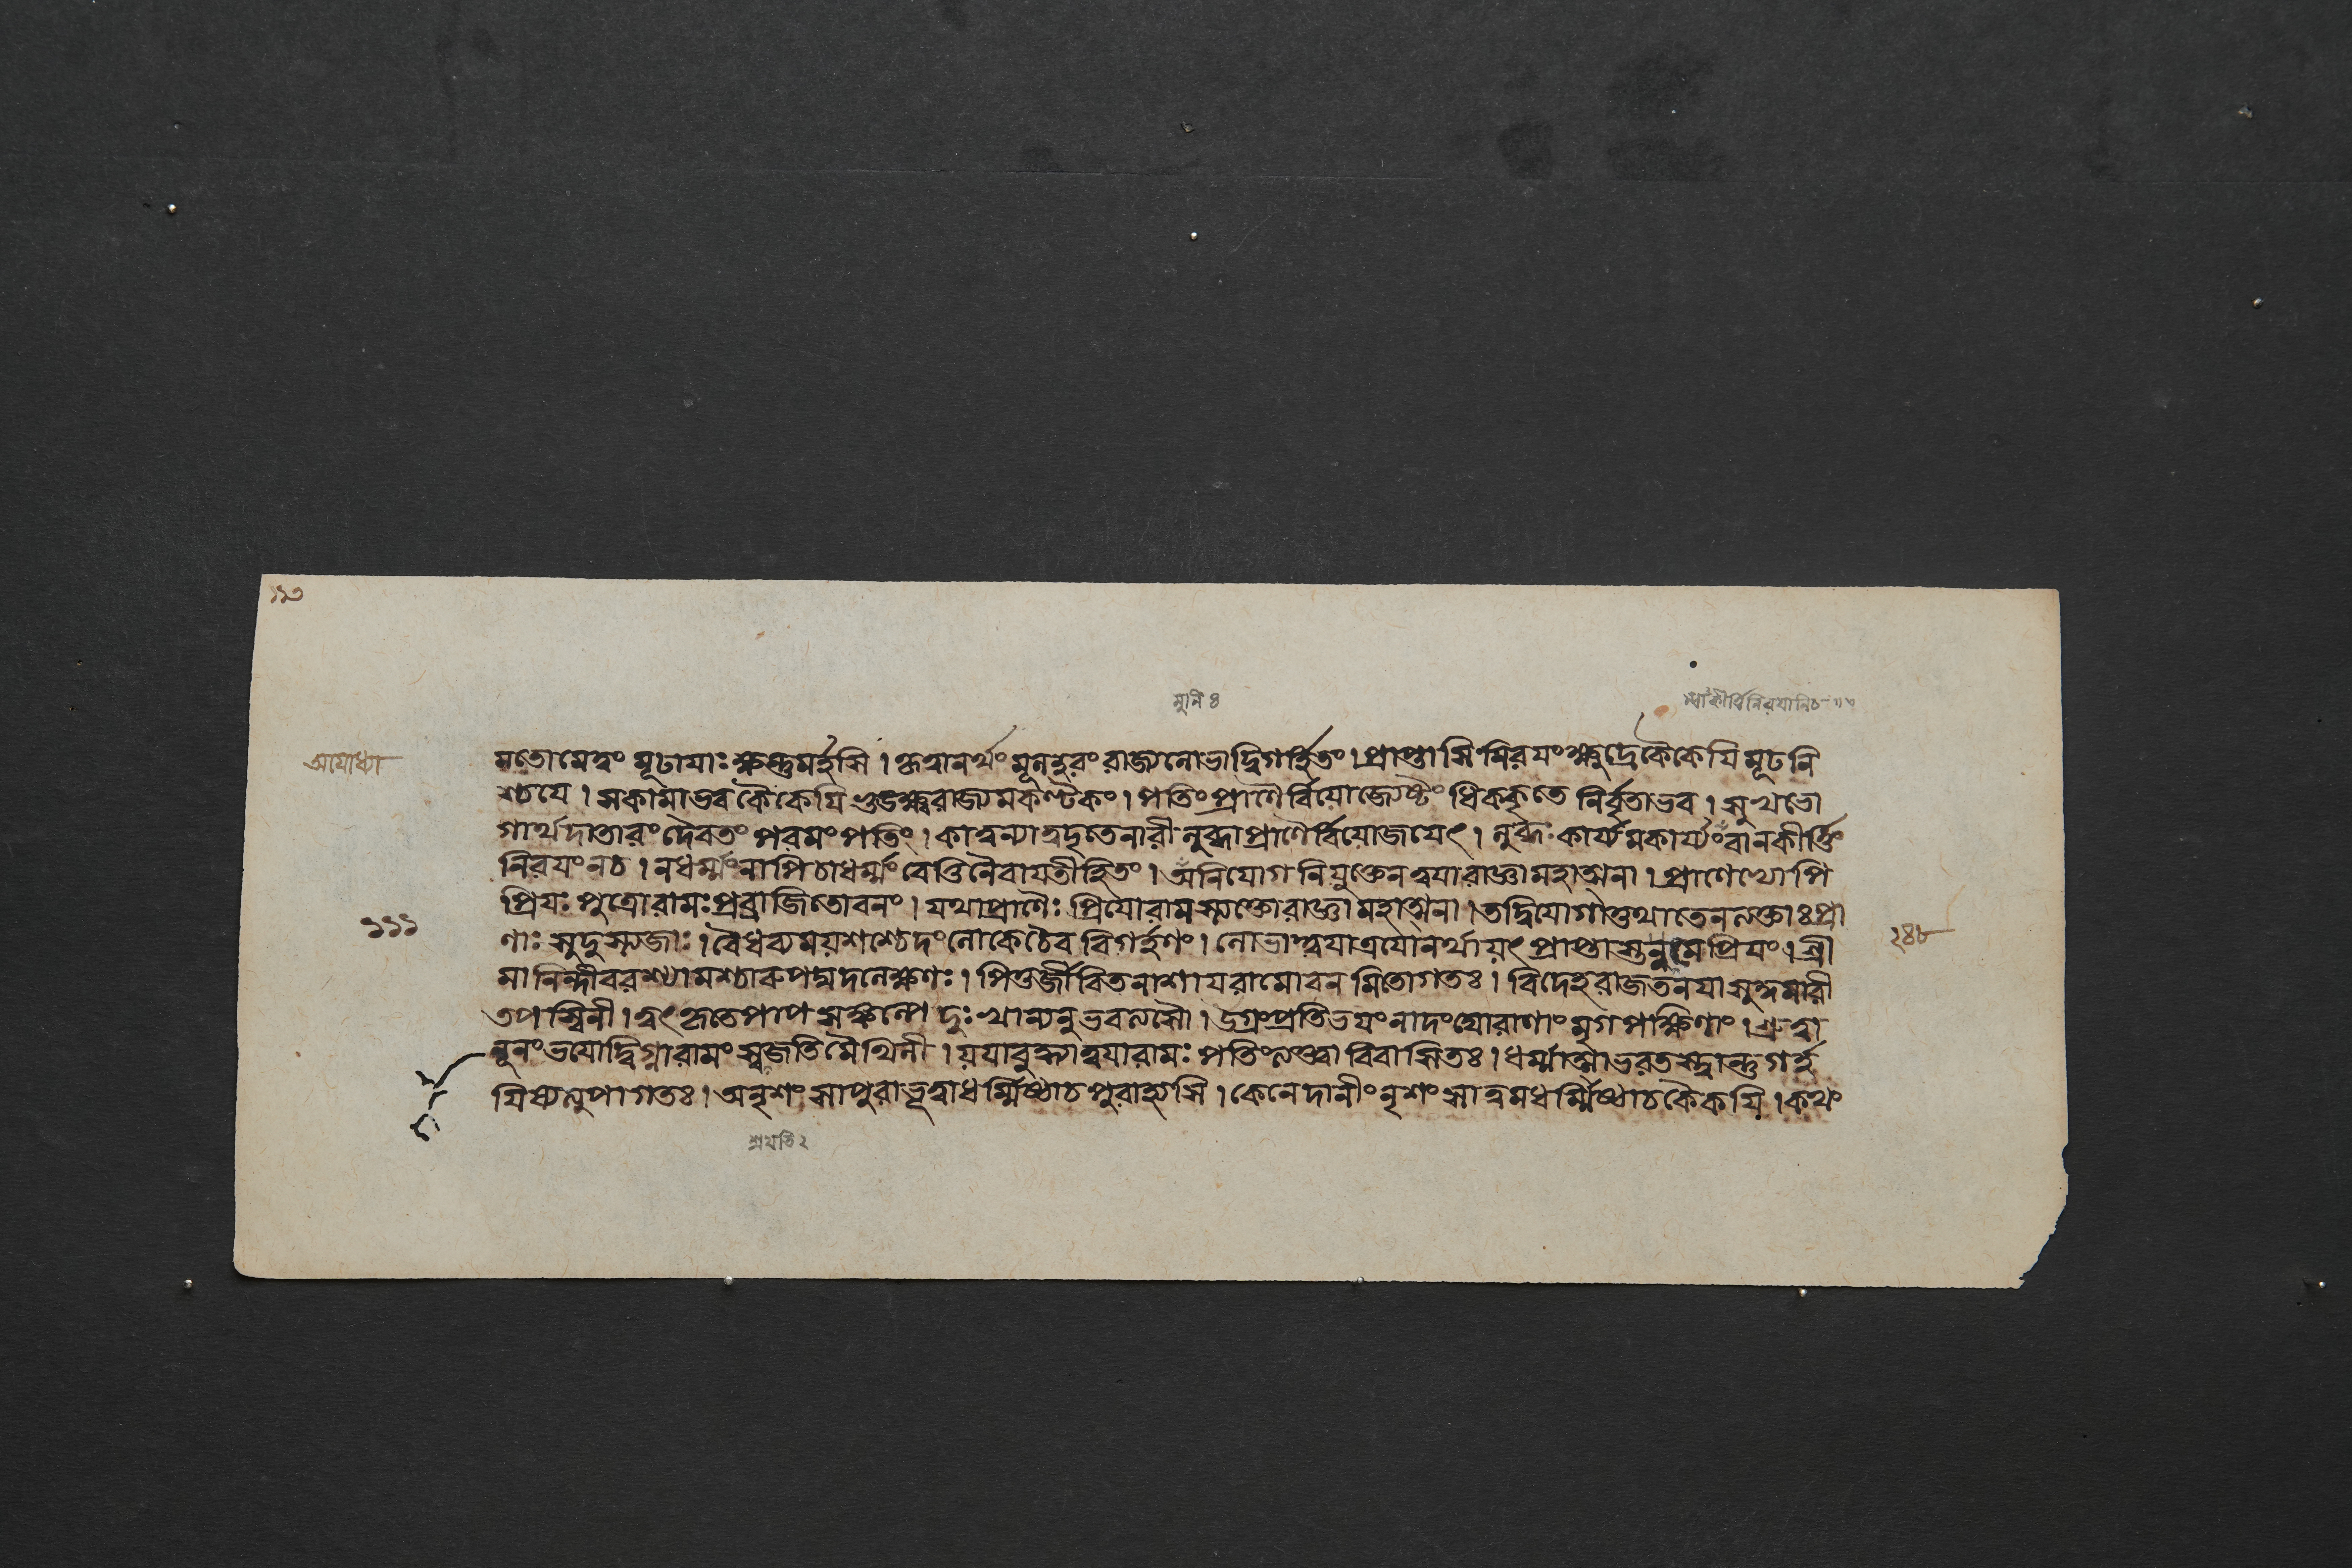 ১১৩
মুনি ৪
অযোধ্যা
মতোমেত্বং মূঢাযাঃ ক্ষন্তুমর্হসি । কৃত্বানর্থং মূলহরং রাজ্যলোভাদ্বিগর্হিতং । প্রাপ্তাসি নিরযং ক্ষুদ্রে কৈকেযি মূঢনি
শ্চযে । সকামাভব কৈকেযি ভুংক্ষ্বরাজ্যমকণ্টকং । পতিং প্রাণৈর্বিযোজ্যেষ্টং ধিককৃতে নির্বৃতাভব । সুখভো
গার্থদাতারং দৈবতং পরমং পতিং । কাত্বন্যাত্বদৃতেনারী লুব্ধাপ্রাণৈর্বিযোজযেৎ । লুব্ধঃ কার্য্যমকার্য্যংবানকীর্ত্তিং
নিরযংনচ । নধর্ম্মংনাপিচাধর্ম্মং বেত্তিনৈবাযতীহিতং । অনিযোগনিযুক্তেনত্বযারাজ্ঞামহাত্মনা । প্রাণেভ্যোপি
প্রিযঃ পুত্রোরামঃপ্রব্রাজিতোবনং । যথাপ্রাণৈঃ প্রিযোরামস্ত্যক্তোরাজ্ঞামহাত্মনা । তদ্বিযোগাত্তথাতেনত্যক্তাঃপ্রা
১১১
২৪৮
ণাঃ সুদুস্ত্যজাঃ । বৈধব্যমযশশ্চেদংলোকেচৈব বিগর্হণং । লোভাত্ত্বযাত্রযোনর্থাযৎ প্রাপ্তাস্তন্নুমেপ্রিযং । শ্রী
মানিন্দীবরশ্যামশ্চারুপদ্মদলেক্ষণঃ । পিতুর্জীবিতনাশাযরামোবনমিতোগতঃ । বিদেহরাজতনযাসুকুমারী
তপস্বিনী । ত্বৎকৃতেপাপে দুঃখান্যনুভবত্যসৌ । উগ্রংপ্রতিভযংনাদংঘোরাণাং মৃগপক্ষিণাং । শ্রুত্বা
নূনং ভযোদ্বিগ্নারামং মৈথিলী । যযাবুদ্ধ্যাত্বযারামঃ পতিংত্যক্ত্বা বিবাসিতঃ । ধর্ম্মাত্মাভরতস্ত্বান্তুগর্হ
যিষ্যত্যুপাগতঃ । অনৃশংসাপুরাভূত্বাধর্ম্মিষ্ঠাচপুরাহ্যসি । কেনেদানীং নৃশংসাত্বমধর্ম্মিষ্ঠাচকৈকযি । কথং
শ্রযতি ২